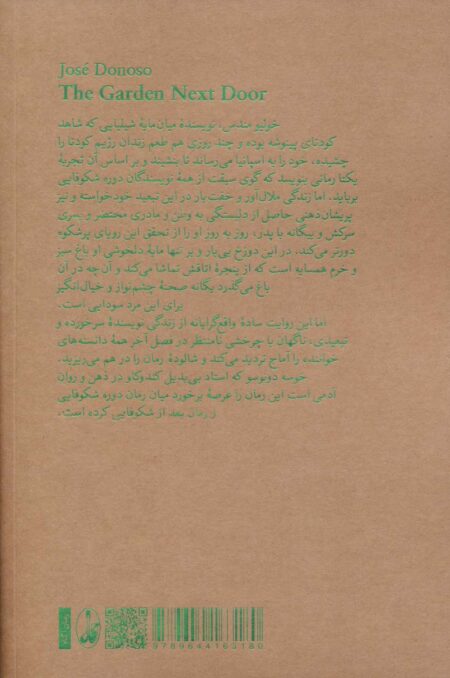 José Donoso
The Garden Next Door
خولیو مندس، نویسندهٔ میان‌مایهٔ شیلیایی که شاهد
کودتای پینوشه بوده و چند روزی هم طعم زندان رژیم کودتا را
چشیده، خود را به اسپانیا می‌رساند تا بنشیند و بر اساس آن تجربهٔ
یکتا رمانی بنویسد که گوی سبقت از همهٔ نویسندگان دوره شکوفایی
برباید. اما زندگی ملال‌آور و خفت بار در این تبعید خودخواسته و نیز
پریشان‌ذهنی حاصل از دلبستگی به وطن و مادری محتضر و پسری
سرکش و بیگانه با پدر، روز به روز او را از تحقق این رویای پرشکوه
دورتر می‌کند. در این دوزخ بی‌بار و بر تنها مایهٔ دلخوشی او باغ سبز
و خرم همسایه است که از پنجرهٔ اتاقش تماشا می‌کند و آن‌چه در آن
باغ می‌گذرد یگانه صحنهٔ چشم‌نواز و خیال‌انگیز
برای این مرد سودایی است.
اما این روایت سادهٔ واقع‌گرایانه از زندگی نویسندهٔ سرخورده و
تبعیدی، ناگهان با چرخشی نامنتظر در فصل آخر همهٔ دانسته‌های
خواننده را آماج تردید می‌کند و شالودهٔ رمان را در هم می‌ریزد.
خوسه دونوسو که استاد بی‌بدیل کندوکاو در ذهن و روان
آدمی است این رمان را عرصهٔ برخورد میان رمان دوره شکوفایی
و رمان بعد از شکوفایی کرده است.
9789644163180